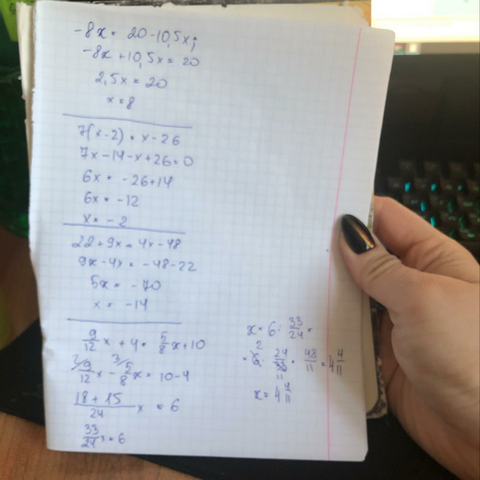 -8x = 20-10,5x;
-8x+10,5x=20
2,5x=20
x=8
7(x-2)=x-26
7x-14-x+26=0
6x=-26+14
6x=-12
x=-2
22+9x=4x-48
9x-4x=-48-22
5x=-70
x=-14
9/12 x + 4 = 5/8 x + 10
2/ 9/12 x - 3/ 5/8 x = 10-4
18+15/24 x = 6
33/24 x = 6
x = 6 : 33/24 =
= 6 · 24/33 = 48/11 = 4 4/11
2
11
x = 4 4/11